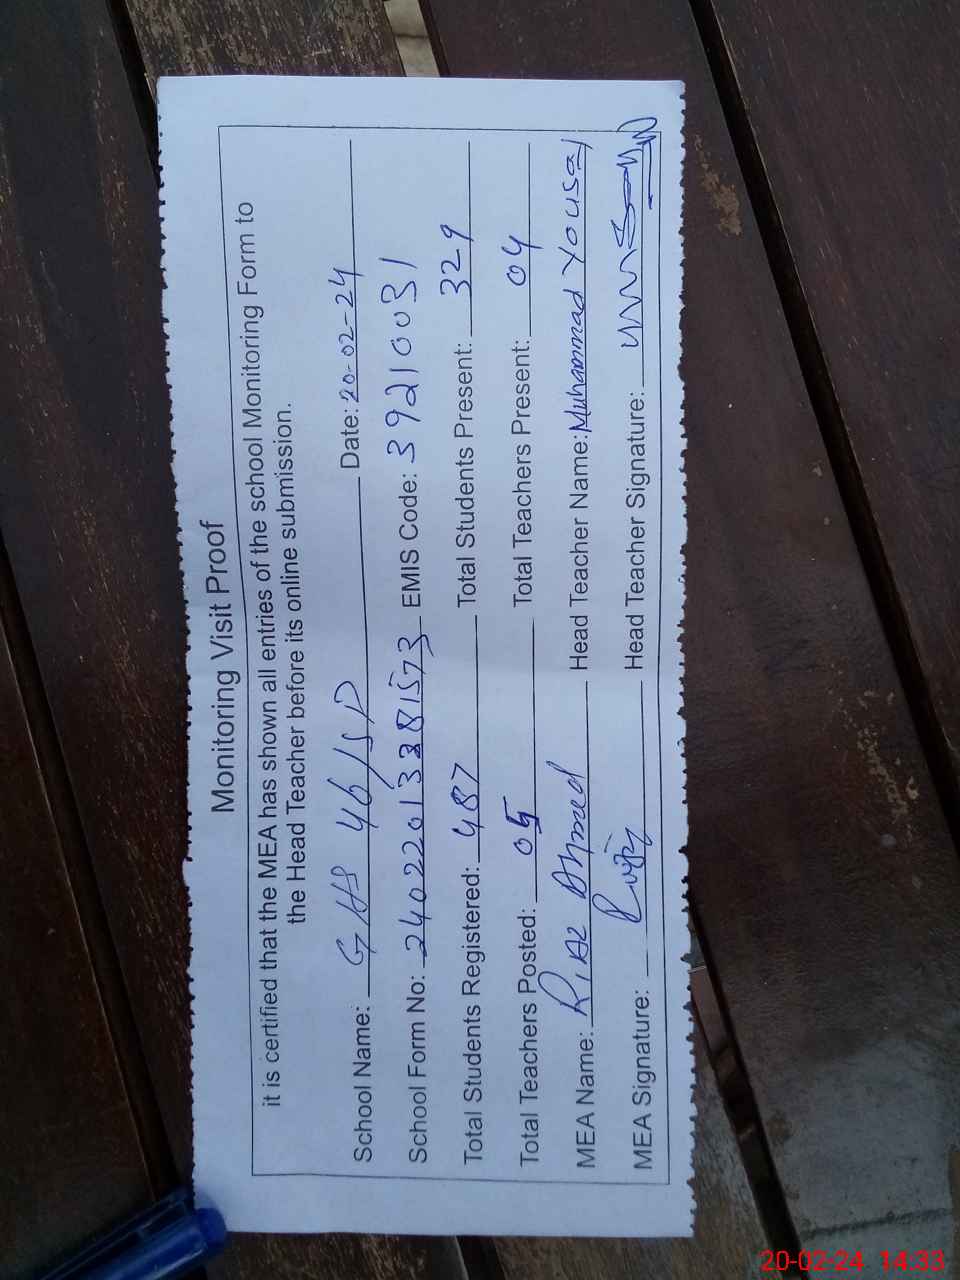 Monitoring Visit Proof
it is certified that the MEA has shown all entries of the school Monitoring Form to
the Head Teacher before its online submission.
School Name: GHS 46/SP Date: 20-02-24
School Form No: 24022013381573 EMIS Code: 39210031
Total Students Registered: 487 Total Students Present: 329
Total Teachers Posted: 05 Total Teachers Present: 04
MEA Name: Riaz Ahmed Head Teacher Name: Muhammad Yousaf
MEA Signature: Head Teacher Signature:
20-02-24 14:33